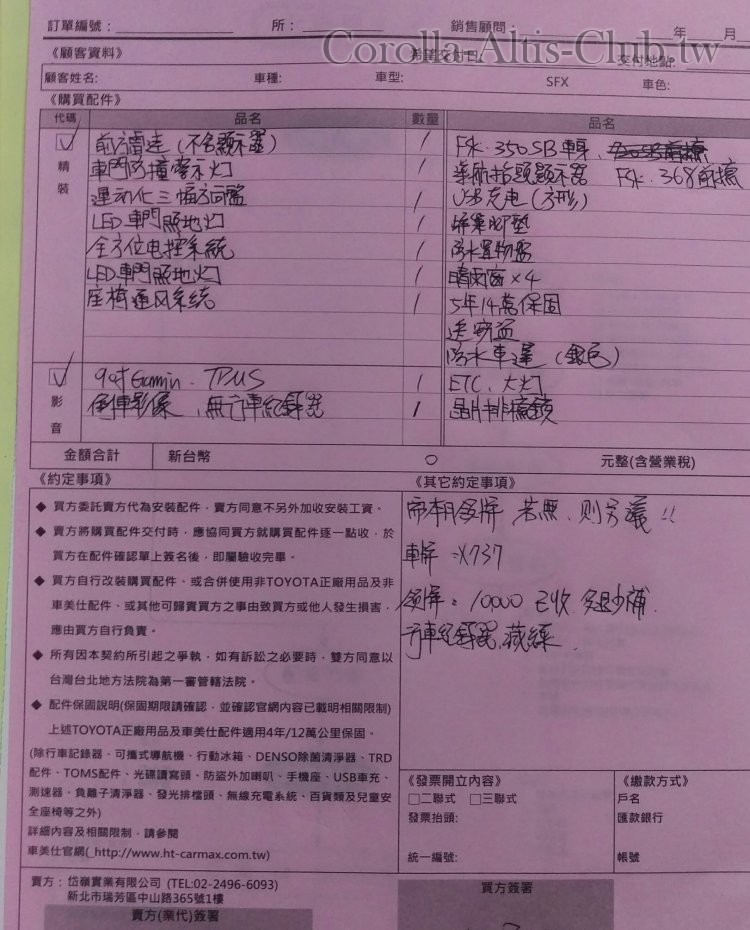 訂單編號： 所： 銷售顧問： 年 月
Corolla-Altis-Club.tw
《顧客資料》 希望交付日: 交付地點:
顧客姓名: 車種: 車型: SFX 車色:
《購買配件》
代碼 品名 數量 品名
精裝
前方雷達（不含顯示器） 1 FSK. 350SB車身、
車門防撞警示灯 1 導航抬頭顯示器 FSK. 368前擋
運動化三幅方向盤 1 USB充电（方形）
LED車門照地灯 1 蜂巢脚墊
全方位电控系統 1 防水置物盤
LED車門照地灯 1 晴雨窗×4
座椅通风系統 1 5年14萬保固
送安益
防水車罩（銀色）
影音
9吋Garmin. TPMS 1 ETC、大灯
倒車影像、無行車紀錄器 1 晶片排擋鎖
金額合計 新台幣 0 元整(含營業稅)
《約定事項》
◆ 買方委託賣方代為安裝配件，賣方同意不另外加收安裝工資。
◆ 賣方將購買配件交付時，應協同買方就購買配件逐一點收，於
買方在配件確認單上簽名後，即屬驗收完畢。
◆ 買方自行改裝購買配件、或合併使用非TOYOTA正廠用品及非
車美仕配件、或其他可歸責買方之事由致買方或他人發生損害，
應由買方自行負責。
◆ 所有因本契約所引起之爭執，如有訴訟之必要時，雙方同意以
台灣台北地方法院為第一審管轄法院。
◆ 配件保固說明(保固期限請確認，並確認官網內容已載明相關限制)
上述TOYOTA正廠用品及車美仕配件適用4年/12萬公里保固。
(除行車記錄器、可攜式導航機、行動冰箱、DENSO除菌清淨器、TRD
配件、TOMS配件、光碟讀寫頭、防盜外加喇叭、手機座、USB車充、
測速器、負離子清淨器、發光排檔頭、無線充電系統、百貨類及兒童安
全座椅等之外)
詳細內容及相關限制，請參閱
車美仕官網(_http://www.ht-carmax.com.tw)
《其它約定事項》
本期領牌 若無、則另議!!
車牌
領牌：10000 已收 多退少補.
行車紀錄器.藏線.
《發票開立內容》
□二聯式 □三聯式
發票抬頭:
統一編號:
《繳款方式》
戶名
匯款銀行
帳號
賣方：岱嶺實業有限公司 (TEL:02-2496-6093)
新北市瑞芳區中山路365號1樓
賣方(業代)簽署
買方簽署